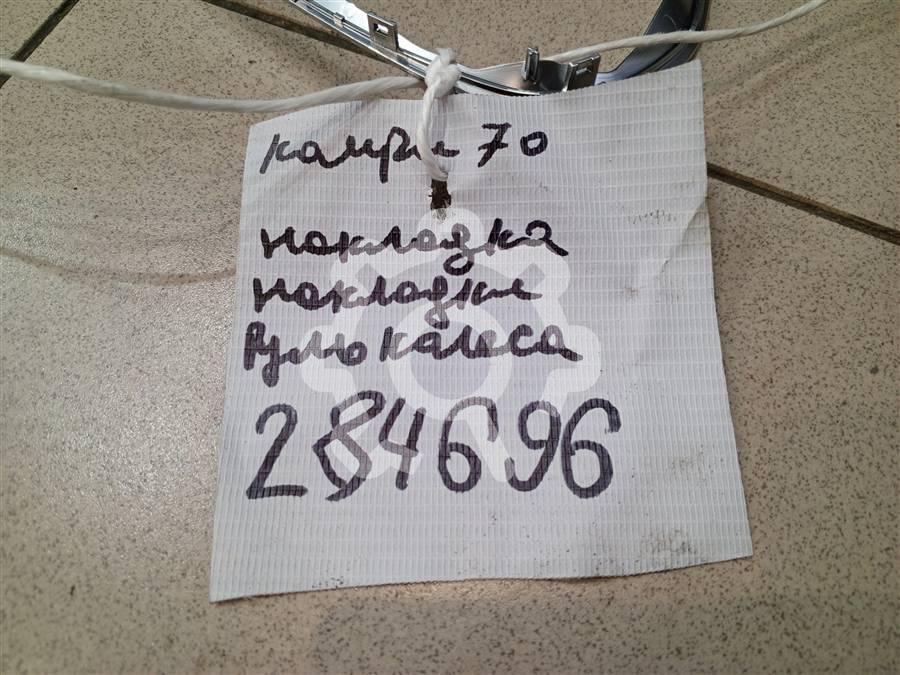 камри 70
накладка
накладки
Рулю колеса
284696